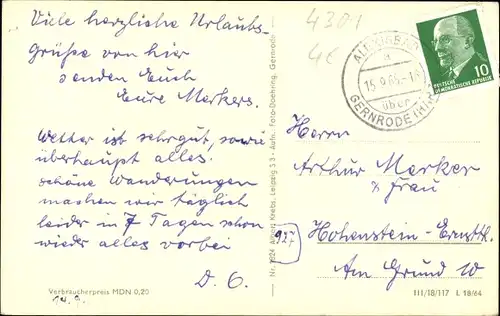 Viele herzliche Urlaubs-
grüße von hier
senden Euch
Eure Merkers.
Wetter ist sehr gut, sowie
überhaupt alles.
schöne Wanderungen
machen wir täglich
leider in 7 Tagen schon
wieder alles vorbei
D. O.
Verbraucherpreis MDN 0,20
14.9.
Nr. 1924 Albert Krebs, Leipzig S 3 - Aufn. Foto-Doehring, Gernrode
4301
4E
15.9.65
über
GERNRODE (HARZ)
10
DEUTSCHE
DEMOKRATISCHE REPUBLIK
Herrn
Arthur Merker
u Frau
927
Hohenstein-Ernstthl.
Am Grund 10
III/18/117 L 18/64